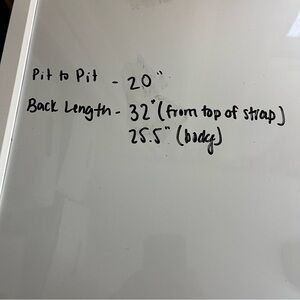 Pit to Pit - 20"
Back Length - 32" (from top of strap)
25.5" (body)